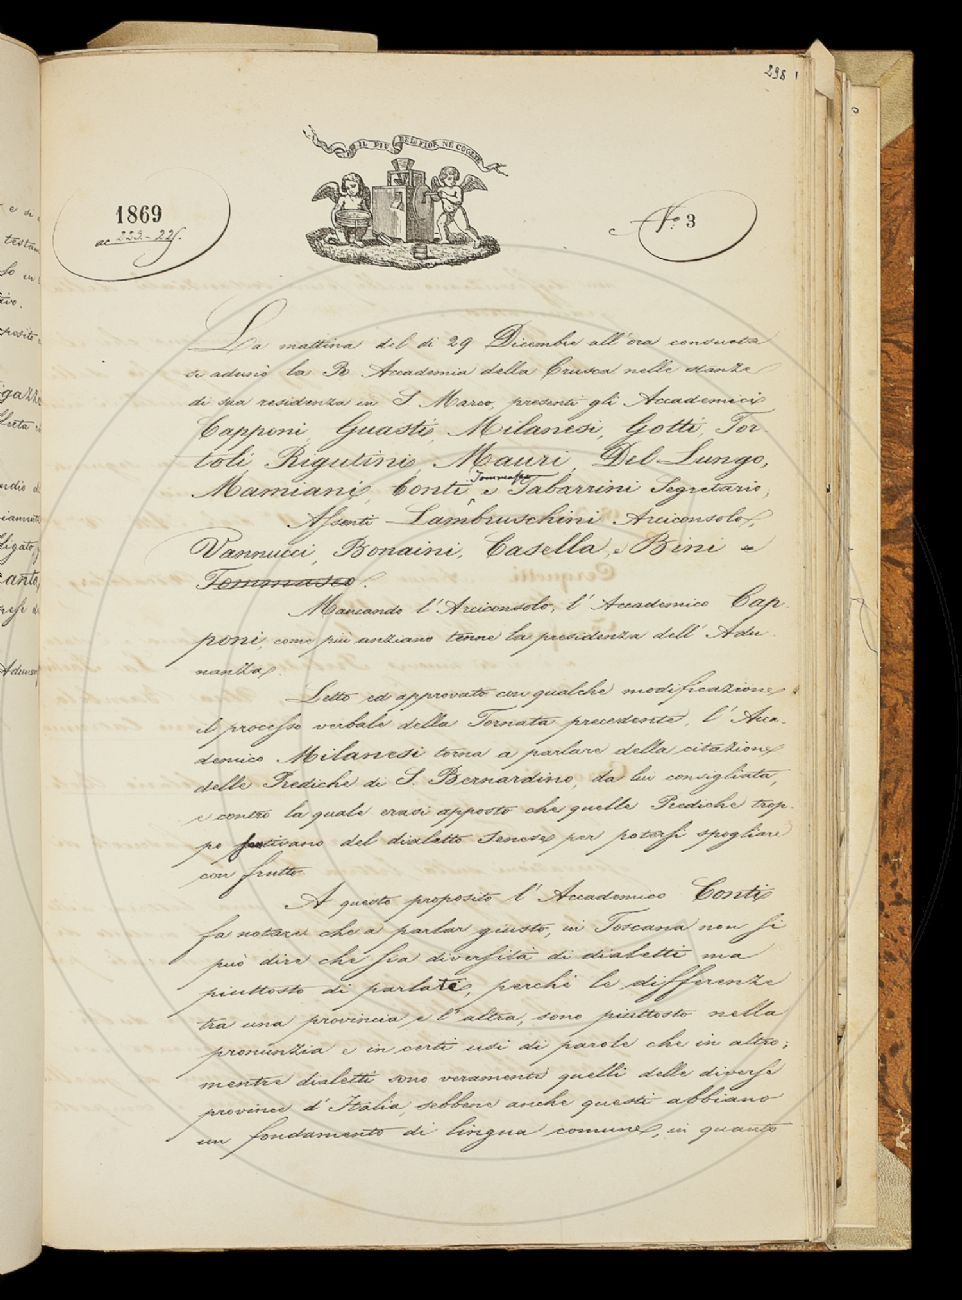 298
IL PIÙ BEL FIOR NE COGLIE
1869
ac 223-225.
N.° 3
La mattina del di 29 Dicembre all'ora consueta
si adunò la R. Accademia della Crusca nelle stanze
di sua residenza in S. Marco, presenti gli Accademici
Capponi, Guasti, Milanesi, Gotti, Tor-
toli, Rigutini, Mauri, Del Lungo,
Tommaseo
Mamiani, Conti, e Tabarrini Segretario;
Assenti Lambruschini Arciconsolo,
Vannucci, Bonaini, Casella, e Bini e
Tommaseo.
Mancando l'Arciconsolo, l'Accademico Cap-
poni, come più anziano tenne la presidenza dell'Adu-
nanza.
Letto ed approvato con qualche modificazione
il processo verbale della Tornata precedente, l'Acca-
demico Milanesi torna a parlare della citazione
delle Prediche di S. Bernardino, da lui consigliata,
e contro la quale erasi apposto che quelle Prediche trop-
po sentivano del dialetto Senese per potersi spogliare
con frutto.
A questo proposito l'Accademico Conti
fa notare che a parlar giusto, in Toscana non si
può dire che sia diversità di dialetti ma
piuttosto di parlate, perchè le differenze
tra una provincia e l'altra, sono piuttosto nella
pronunzia e in certi usi di parole che in altro;
mentre dialetti sono veramente quelli delle diverse
province d'Italia, sebbene anche questi abbiano
un fondamento di lingua comune, in quanto